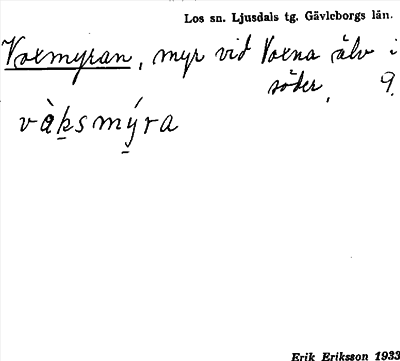 Los sn. Ljusdals tg. Gävleborgs län.
Voxmyran, myr vid Voxna älv i
söder. 9.
vàk̠smý̠ra
Erik Eriksson 1933